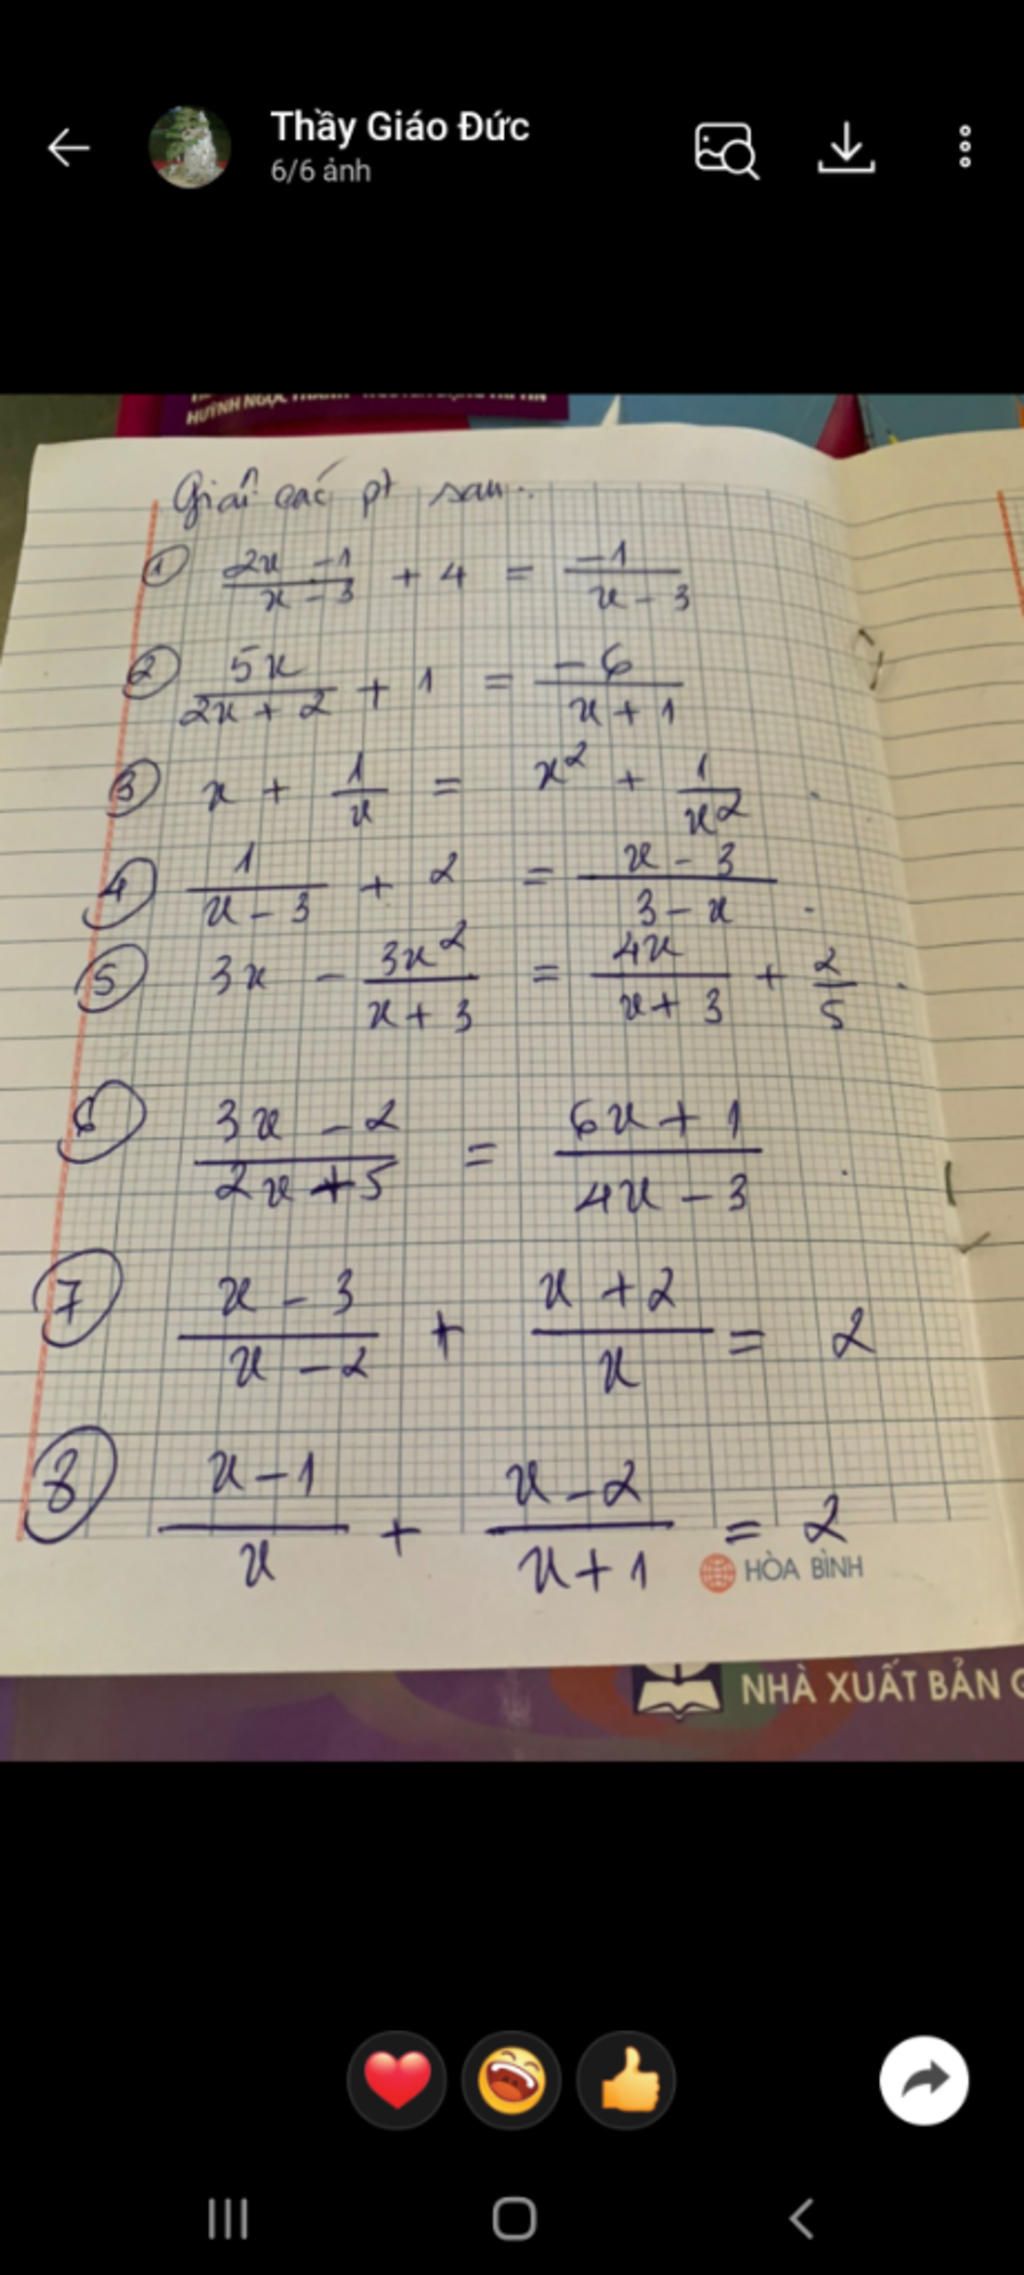 Thầy Giáo Đức
6/6 ảnh
Giải các pt sau:
① (2x - 1)/(x - 3) + 4 = (-1)/(x - 3)
② 5x/(2x + 2) + 1 = (-6)/(x + 1)
③ x + 1/x = x² + 1/x²
④ 1/(x - 3) + 2 = (x - 3)/(3 - x)
⑤ 3x - 3x²/(x + 3) = 4x/(x + 3) + 2/5
⑥ (3x - 2)/(2x + 5) = (6x + 1)/(4x - 3)
⑦ (x - 3)/(x - 2) + (x + 2)/x = 2
⑧ (x - 1)/x + (x - 2)/(x + 1) = 2
HÒA BÌNH
NHÀ XUẤT BẢN G